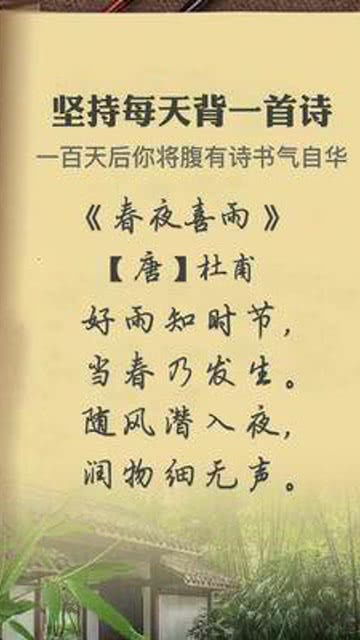 坚持每天背一首诗
一百天后你将腹有诗书气自华
《春夜喜雨》
【唐】杜甫
好雨知时节，
当春乃发生。
随风潜入夜，
润物细无声。